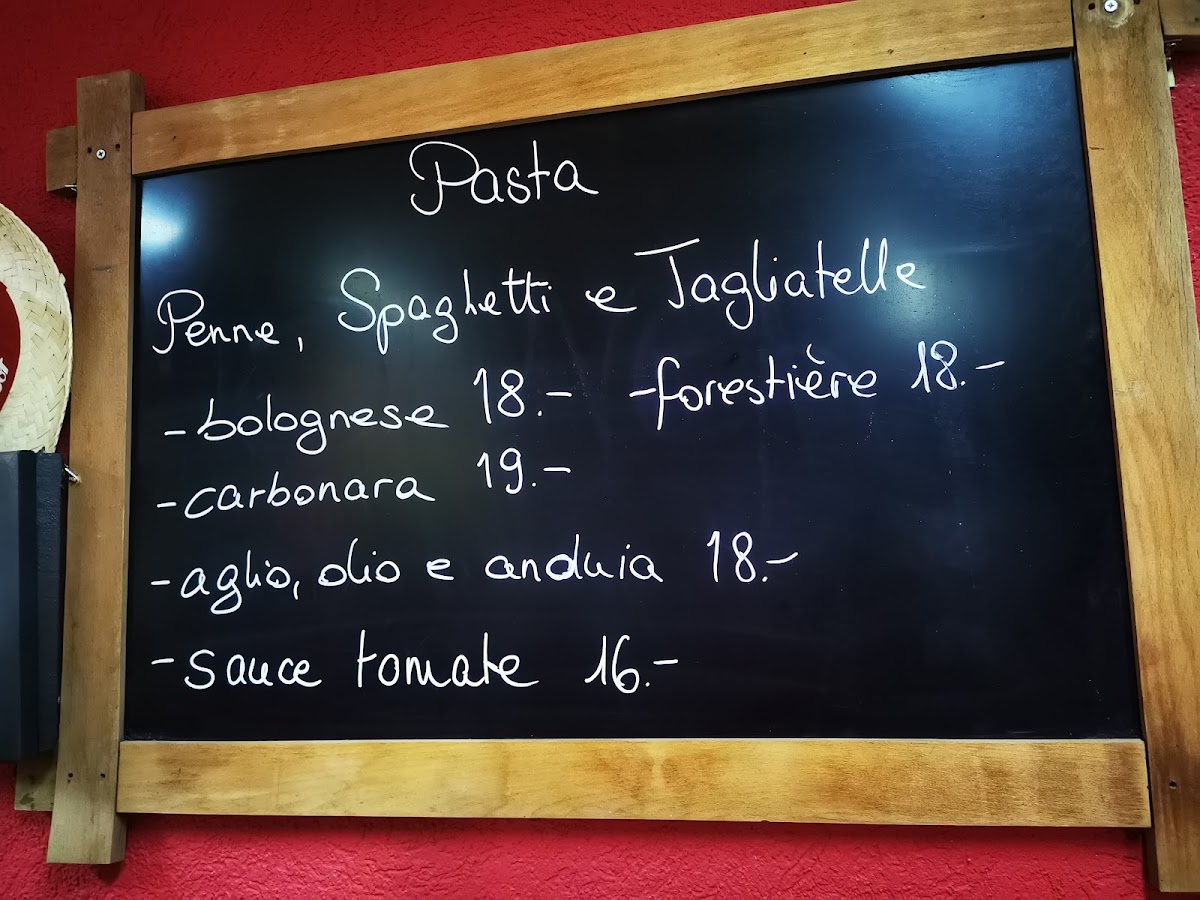 Pasta
Penne, Spaghetti e Tagliatelle
-bolognese 18.- -forestière 18.-
-carbonara 19.-
-aglio, olio e anduia 18.-
-sauce tomate 16.-